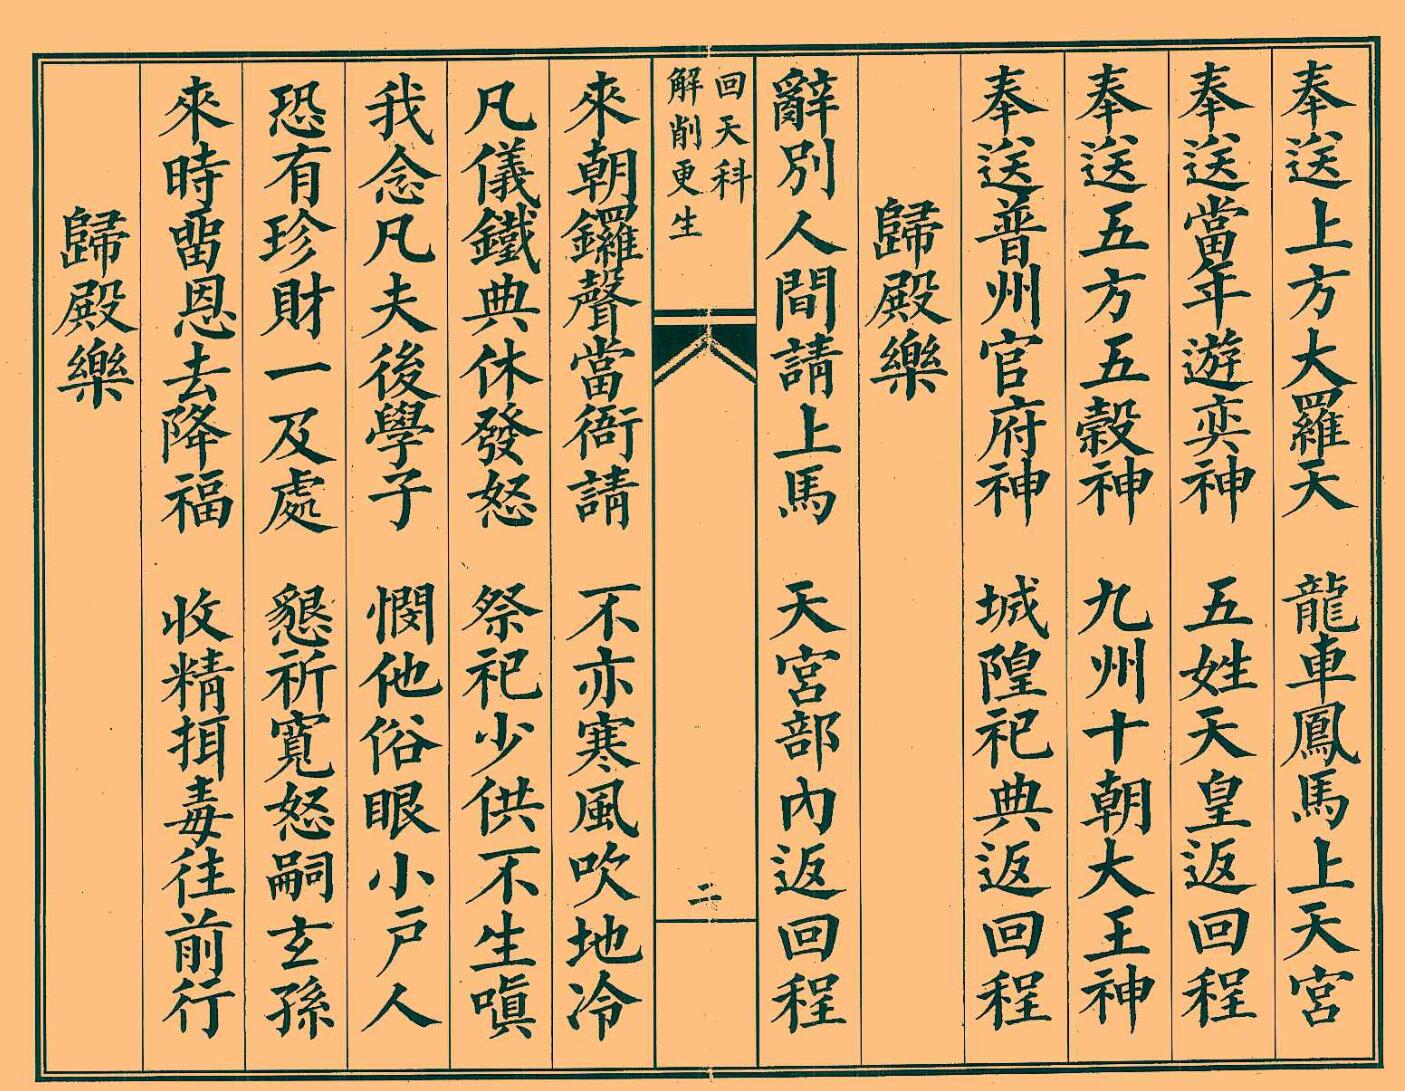 奉送上方大羅天　龍車鳳馬上天宮
奉送當年遊奕神　五姓天皇返回程
奉送五方五穀神　九州十朝大王神
奉送普州官府神　城隍祀典返回程
歸殿樂
辭別人間請上馬　天宮部內返回程
回天科
解削更生
二
來朝鑼聲當衙請　不亦寒風吹地冷
凡儀鐵典休發怒　祭祀少供不生嗔
我念凡夫後學子　憫他俗眼小戶人
恐有珍財一及處　懇祈寬怒嗣玄孫
來時畱恩去降福　收精挕毒往前行
歸殿樂